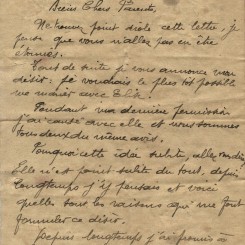 Biens Chers Parents,
Ne trouvez point drôle cette lettre, je
pense que vous n'allez pas en être
étonnés.
Tout de suite je vous annonce mon
désir: je voudrais le plus tôt possible
me marier avec
Pendant ma dernière permission
j'ai causé avec elle et nous sommes
tous deux du même avis.
Pourquoi cette idée subite, allez-vous dire
Elle n'est point subite du tout, depuis
longtemps j'y pensais et voici
quelles sont les raisons qui me font
formuler ce désir.
Depuis longtemps j'ai promis à